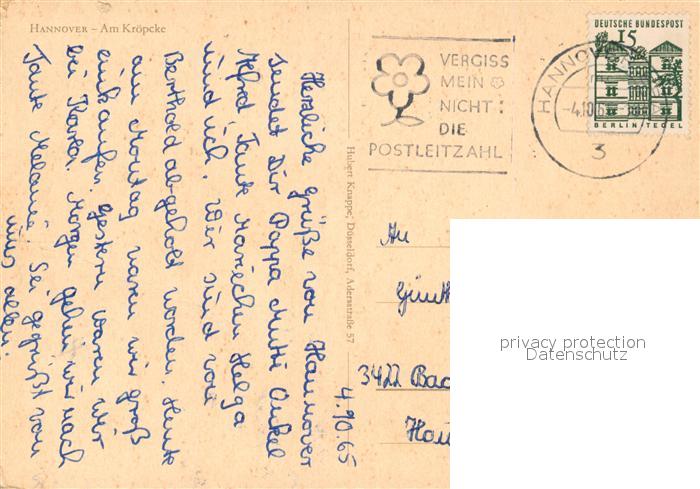 HANNOVER – Am Kröpcke
Herzliche Grüße von Hannover
sendet Dir Pappa Mutti Onkel
Alfred, Tante Mariechen Helga
und ich. Wir sind von
Berthold abgeholt worden. Heute
am Montag waren wir groß
einkaufen. Gestern waren wir
bei Karla. Morgen gehen wir nach
Tante Melanie. Sei gegrüßt von
uns allen.
4.10.65
Hubert Knappe, Düsseldorf, Adersstraße 57
VERGISS
MEIN
NICHT:
DIE
POSTLEITZAHL
HANNOVER
-4.10
3
DEUTSCHE BUNDESPOST
15
BERLIN TEGEL
An
Günth
3422 Bad
Hau
privacy protection
Datenschutz